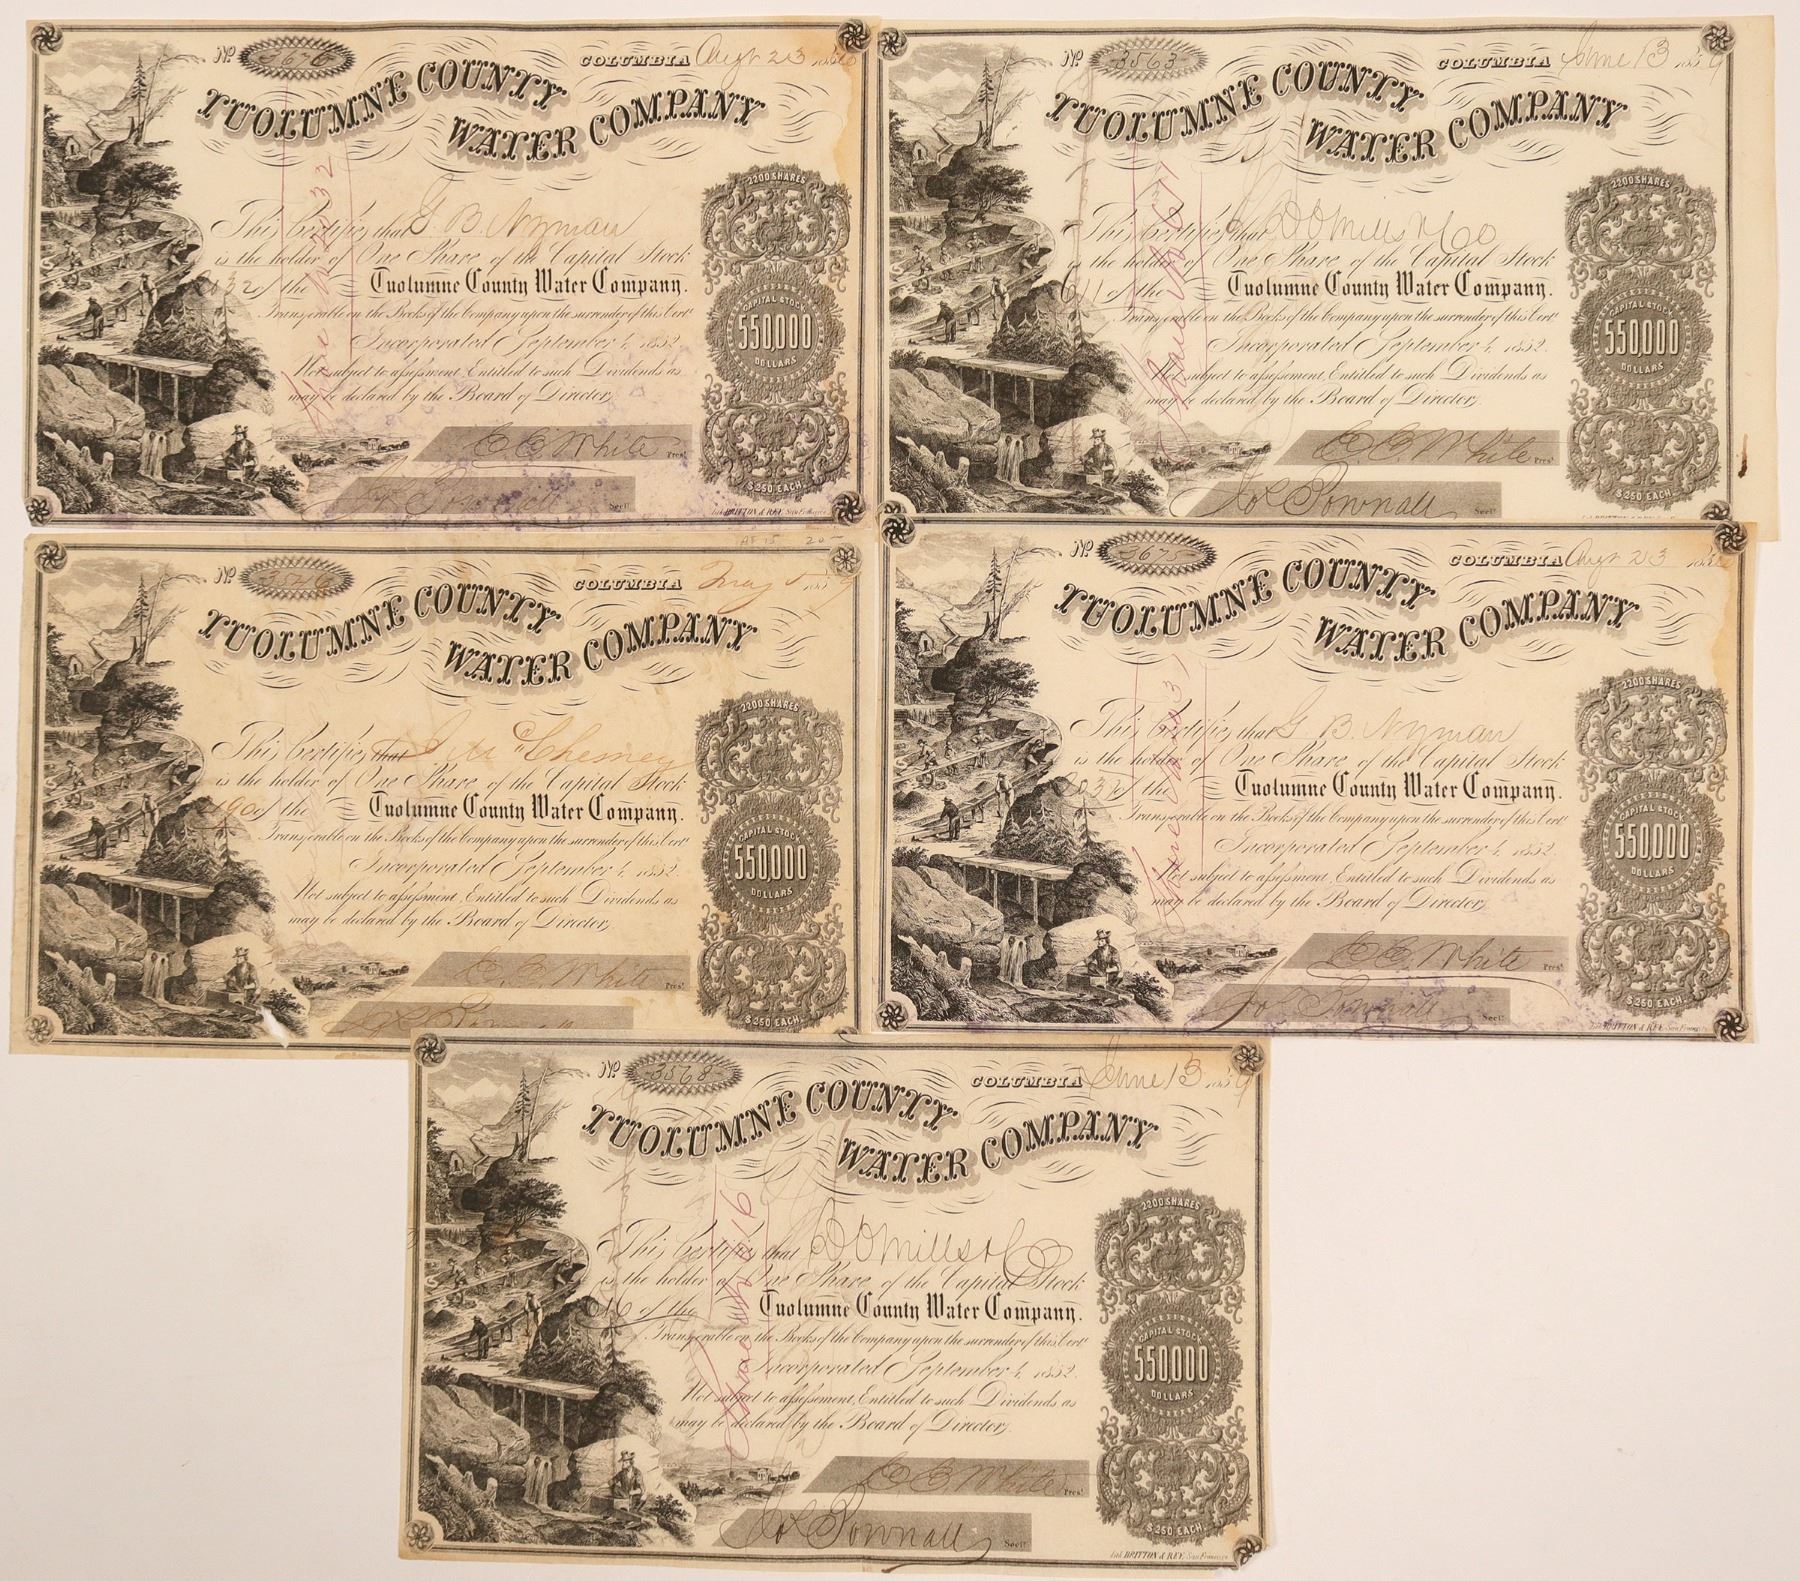 No 3676 COLUMBIA Augt 23 1860
TUOLUMNE COUNTY
WATER COMPANY
2200 SHARES
This Certifies that G. B. Nyman
is the holder of One Share of the Capital Stock
2032 of the Tuolumne County Water Company.
Transferable on the Books of the Company upon the surrender of this Certe
Incorporated September 4, 1852.
Not subject to assessment, Entitled to such Dividends as
may be declared by the Board of Directors,
CAPITAL STOCK
550,000
DOLLARS
$250 EACH.
E. E. White Prest
Jos Pownall Secty
Lith. BRITTON & REY. San Francisco
Share No 2032
No 3563 COLUMBIA June 13 1859
TUOLUMNE COUNTY
WATER COMPANY
2200 SHARES
This Certifies that D O Mills & Co
is the holder of One Share of the Capital Stock
611 of the Tuolumne County Water Company.
Transferable on the Books of the Company upon the surrender of this Certe
Incorporated September 4, 1852.
Not subject to assessment, Entitled to such Dividends as
may be declared by the Board of Directors,
CAPITAL STOCK
550,000
DOLLARS
$250 EACH.
E. E. White Prest
Jos Pownall Secty
Share No 611
AF 15 20-
No 3546 COLUMBIA May 1859
TUOLUMNE COUNTY
WATER COMPANY
2200 SHARES
This Certifies that J McChesney
is the holder of One Share of the Capital Stock
of the Tuolumne County Water Company.
Transferable on the Books of the Company upon the surrender of this Certe
Incorporated September 4, 1852.
Not subject to assessment, Entitled to such Dividends as
may be declared by the Board of Directors,
CAPITAL STOCK
550,000
DOLLARS
$250 EACH.
E. E. White Prest
Jos Pownall
No 3675 COLUMBIA Augt 23 1860
TUOLUMNE COUNTY
WATER COMPANY
2200 SHARES
This Certifies that G. B. Nyman
is the holder of One Share of the Capital Stock
2031 of the Tuolumne County Water Company.
Transferable on the Books of the Company upon the surrender of this Certe
Incorporated September 4, 1852.
Not subject to assessment, Entitled to such Dividends as
may be declared by the Board of Directors,
CAPITAL STOCK
550,000
DOLLARS
$250 EACH.
E. E. White Prest
Jos Pownall Secty
Lith. BRITTON & REY. San Francisco
Share No 2031
No 3568 COLUMBIA June 13 1859
TUOLUMNE COUNTY
WATER COMPANY
2200 SHARES
This Certifies that D O Mills & Co
is the holder of One Share of the Capital Stock
616 of the Tuolumne County Water Company.
Transferable on the Books of the Company upon the surrender of this Certe
Incorporated September 4, 1852.
Not subject to assessment, Entitled to such Dividends as
may be declared by the Board of Directors,
CAPITAL STOCK
550,000
DOLLARS
$250 EACH.
E. E. White Prest
Jos Pownall Secty
Lith. BRITTON & REY. San Francisco
Share No 616